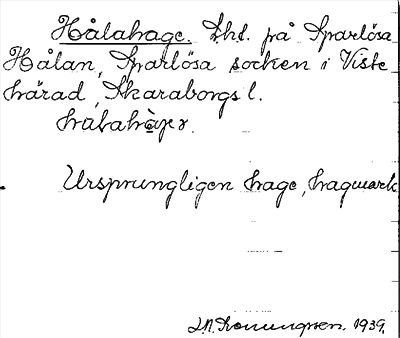 Hålahage. Lht. på Sparlösa
Hålan, Sparlösa socken i Viste
härad, Skaraborgs l.
Ursprungligen hage, hagmark
1939.